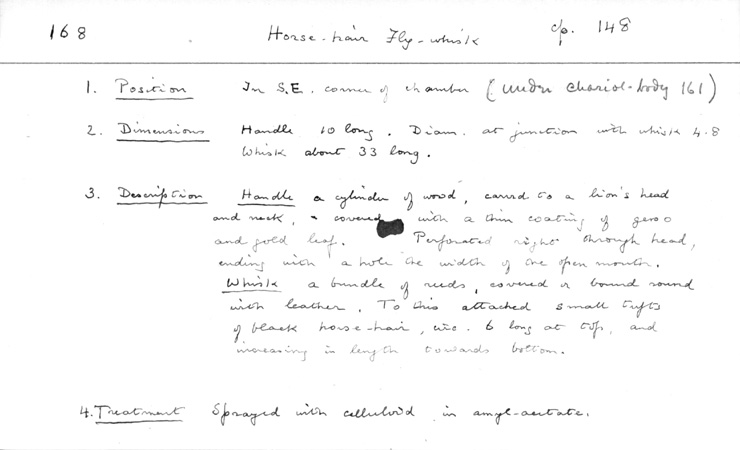 168 Horse-hair Fly-whisk cp. 148
1. Position In S.E. corner of chamber (under chariot-body 161)
2. Dimensions Handle 10 long. Diam. at junction with whisk 4.8
Whisk about 33 long.
3. Description Handle a cylinder of wood, carved to a lion's head
and neck, & covered with a thin coating of gesso
and gold leaf. Perforated right through head,
ending with a hole the width of the open mouth.
Whisk a bundle of reeds, covered or bound round
with leather. To this attached small tufts
of black horse-hair, 6 long at top, and
increasing in length towards bottom.
4. Treatment Sprayed with celluloid in amyl-acetate.